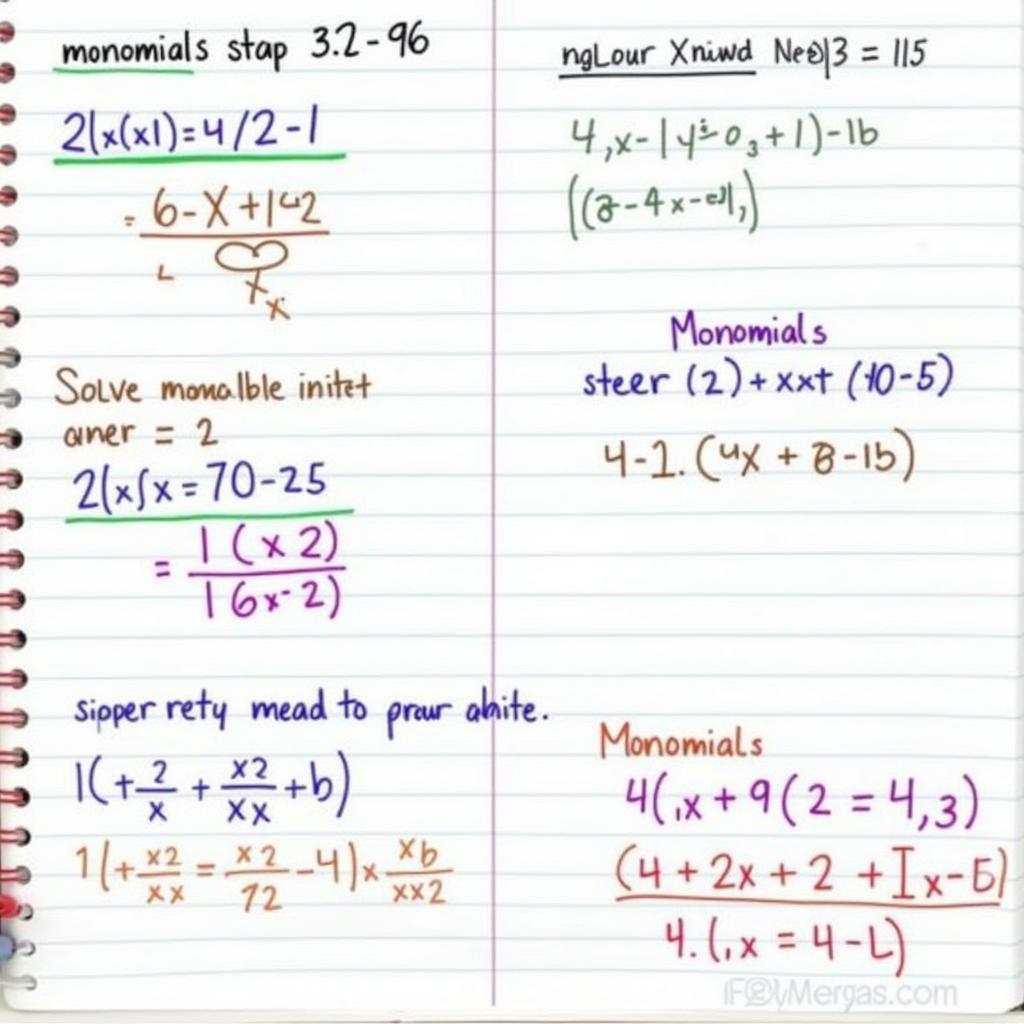 monomials stap 3.2-96
2(x(x1)=4/2-1
= 6-X+142
x
x
Solve monalble initet
aner = 2
2(x∫x=70-25
= 1 (x 2)
1 6x-2)
sipper rety mead to praur abite.
1(+2/x + x2/xx +b)
1(+x2/xx = x2/72 -4)x xb/xx2
ngLour Xniwd = 115
4,x-
Monomials
steer (2)+xxt (10-5)
4-1.(4x + 8-1b)
Monomials
4(,x+9(2=4,3)
(4+2x+2+Ix-5)
4.(,x=4-L)
Mergas.com